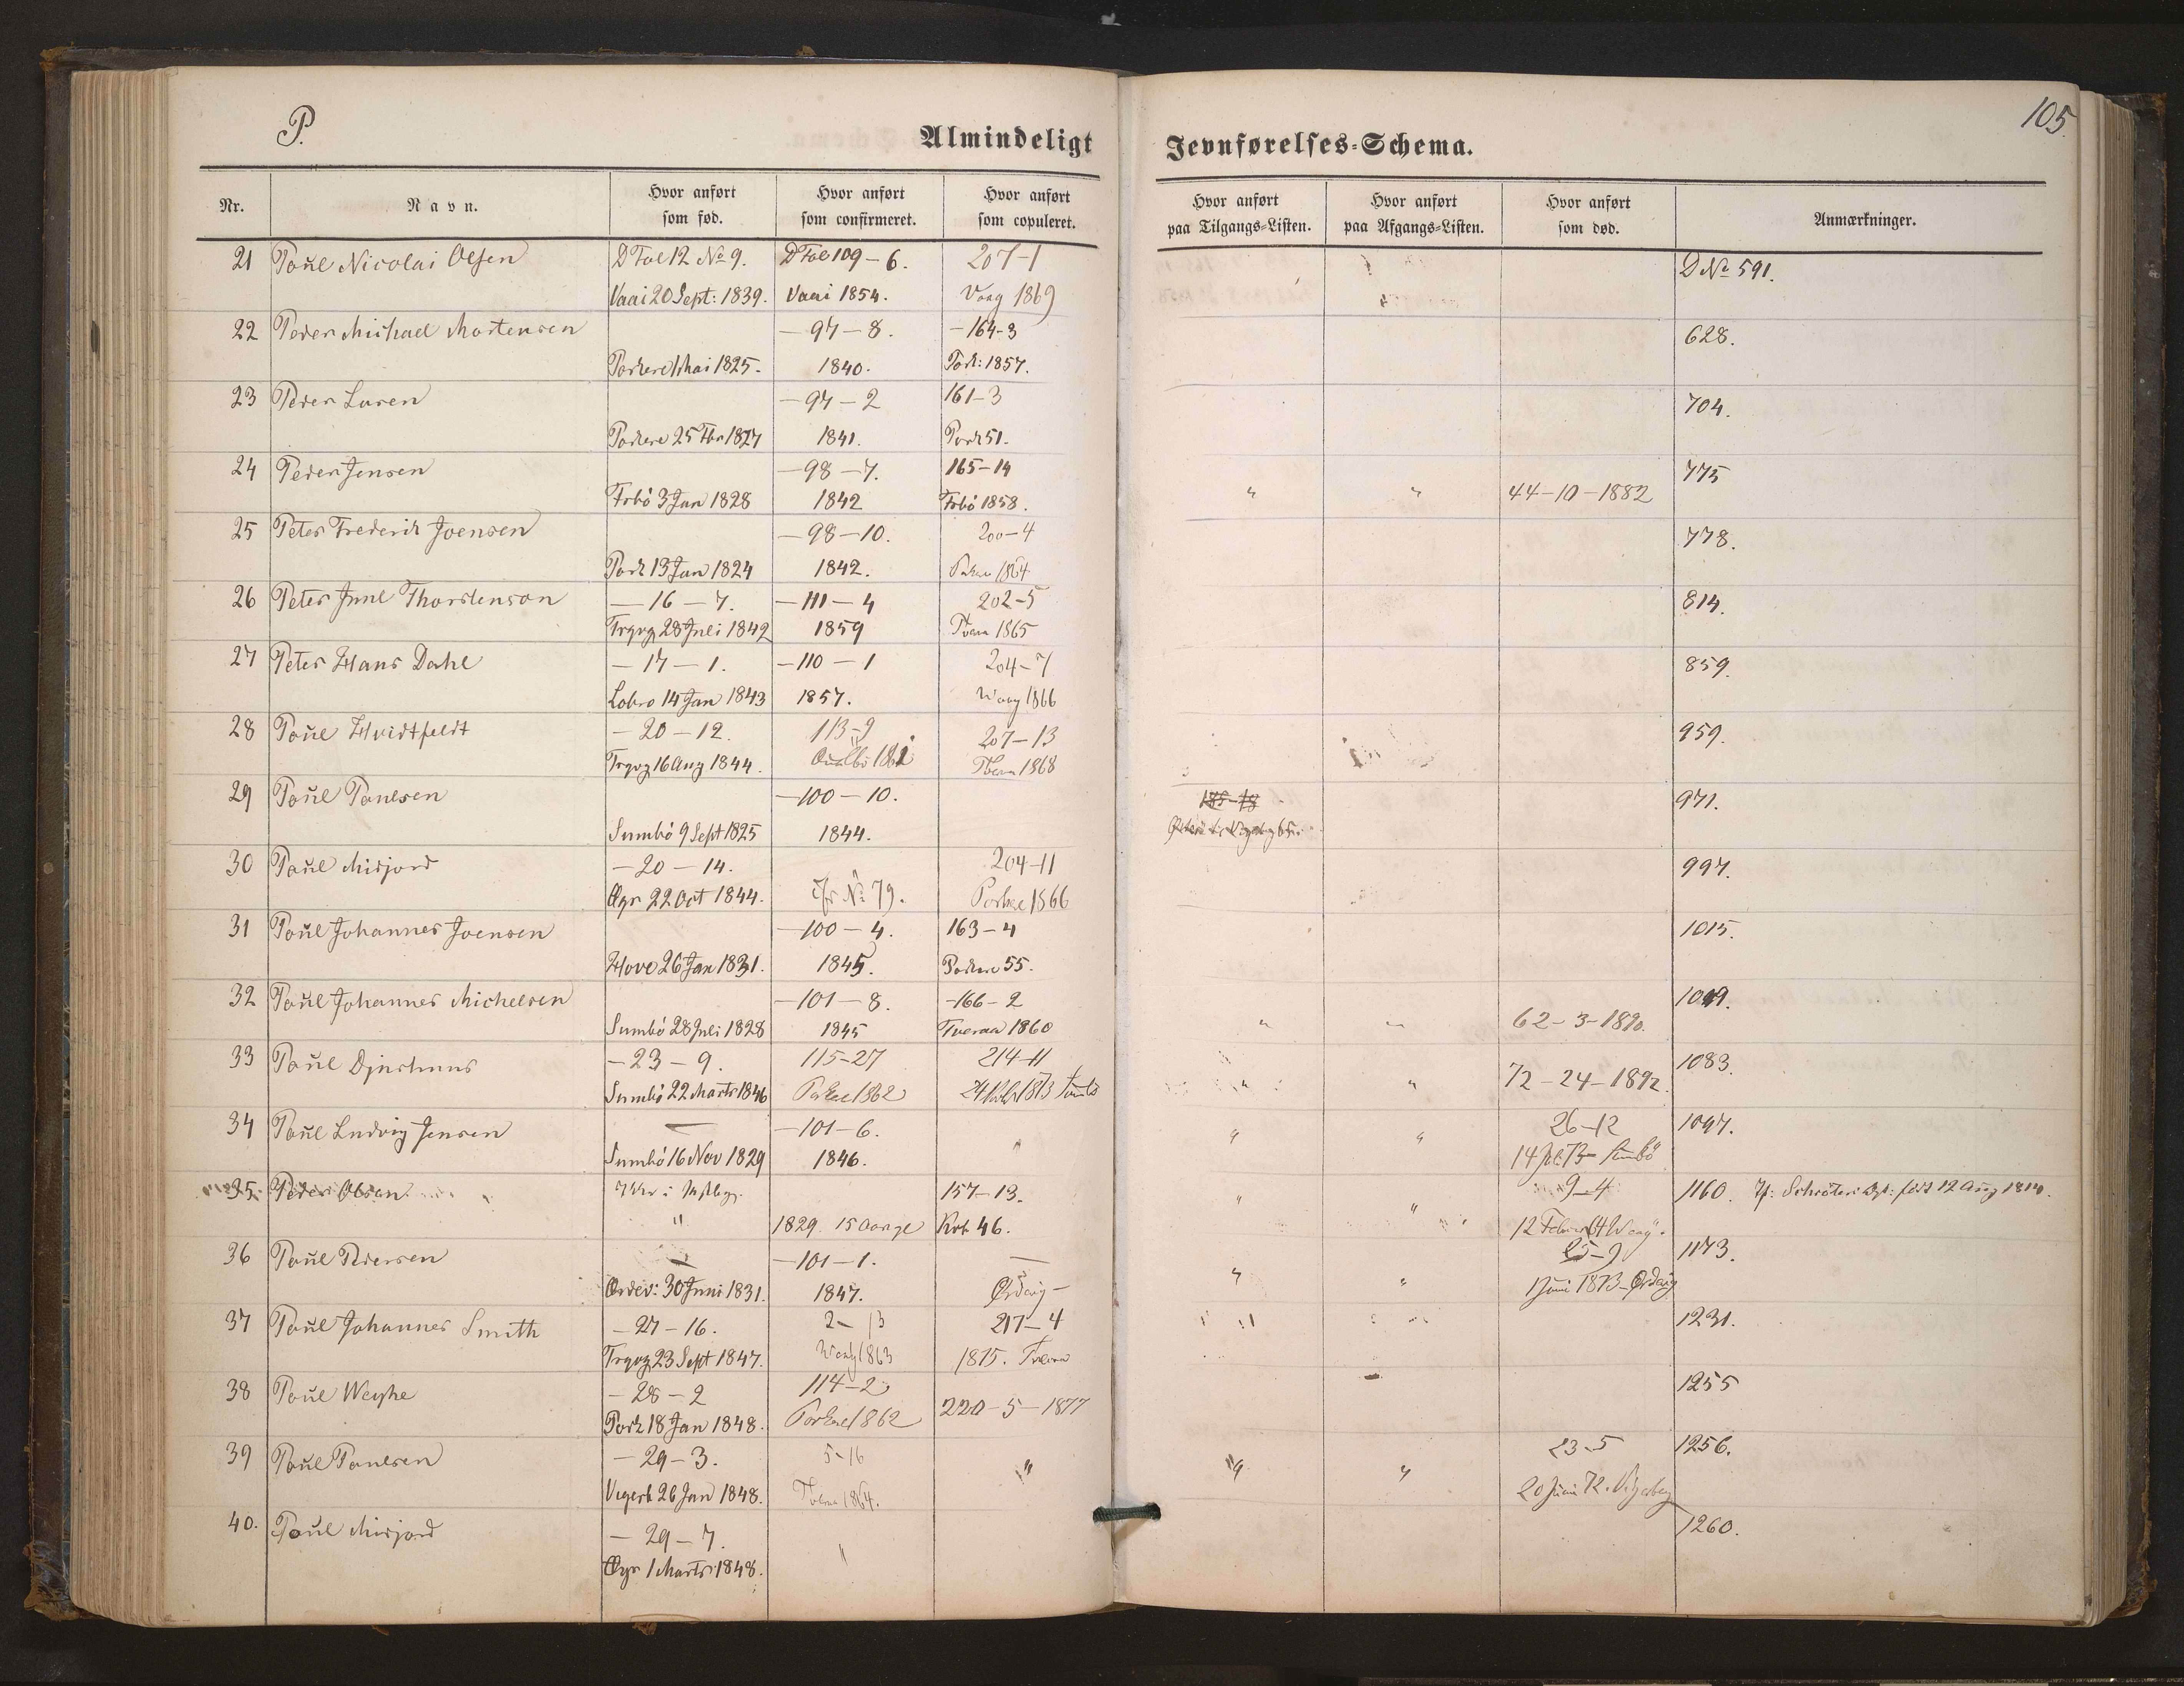 P.
Almindeligt
Jevnførelses-Schema.
105
Nr.
Navn.
Hvor anført
som fød.
Hvor anført
som confirmeret.
Hvor anført
som copuleret.
Hvor anført
paa Tilgangs-Listen.
Hvor anført
paa Afgangs-Listen.
Hvor anført
som død.
Anmærkninger.
21 Poul Nicolai Olsen D Fol 12 No 9. D Fol 109 – 6. 207-1 D No 591.
Vaai 20 Sept: 1839. Vaai 1854. Vaag 1869
22 Peder Michael Mortensen – 97 – 8. – 164-3 628.
Porkere 1 Mai 1825. 1840. Pork: 1857.
23 Peder Larsen – 97 – 2 161-3 704.
Porkere 25 1827 1841. Pork 51.
24 Peder Jensen – 98 – 7. 165-14 775
Frbö 3 Jan 1828 1842 Frbö 1858. " " 44-10-1882
25 Peter Frederik Joensen – 98 – 10. 200-4 778.
Pork 13 Jan 1824 1842. 1864
26 Peter Juul Thorstenson – 16 – 7. – 111 – 4 202-5 814.
28 Juli 1842 1859 1865
27 Peter Hans Dahl – 17 – 1. – 110 – 1 204-7 859.
Lobro 14 Jan 1843 1857. Waag 1866
28 Poul Hvidtfeldt – 20 – 12. 113-9 207-13 959.
16 Aug 1844. 1868
29 Poul Poulsen – 100 – 10. 971.
Sumbö 9 Sept 1825 1844.
30 Poul Midjord – 20 – 14. 204-11 997.
22 Oct 1844. No 79. Porkere 1866
31 Poul Johannes Joensen – 100 – 4. 163-4 1015.
Hove 26 Jan 1831. 1845. Porkere 55.
32 Poul Johannes Michelsen – 101 – 8. – 166-2
Sumbö 28 Juli 1828 1845 Tveraa 1860 " " 62-3-1890.
33 Poul Djurhuus – 23 – 9. 115-27 214-11 1083.
Sumbö 22 Marts 1846 Porkere 1862 1873 Sumbö " " 72-24-1892.
34 Poul Ludvig Jensen – 101-6. " " " 26-12 1097.
Sumbö 16 Nov 1829 1846. 14 73 Sumbö
35. Peder Olsen 157-13. " " 9-4 1160. født 12 Aug 1814.
" 1829. 15 Aar gl 46. 12 Februar 64 Waag.
36 Poul Pedersen – 101 – 1. – 25-9 1173.
Ørdev: 30 Juni 1831. 1847. " " 1 Juni 1873
37 Poul Johannes Smith – 27 – 16. 2-13 217-4 1231.
23 Sept 1847. Waag 1863 1875.
38 Poul Weyhe – 28 – 2 114-2 1255
Pork 18 Jan 1848. Porkere 1862 220-5-1877
39 Poul Poulsen – 29 – 3. 5-16 " " " 23-5 1256.
26 Jan 1848. 1864. 20 Juni 72.
40. Poul Midjord – 29 – 7. 1260.
1 Marts 1848. "